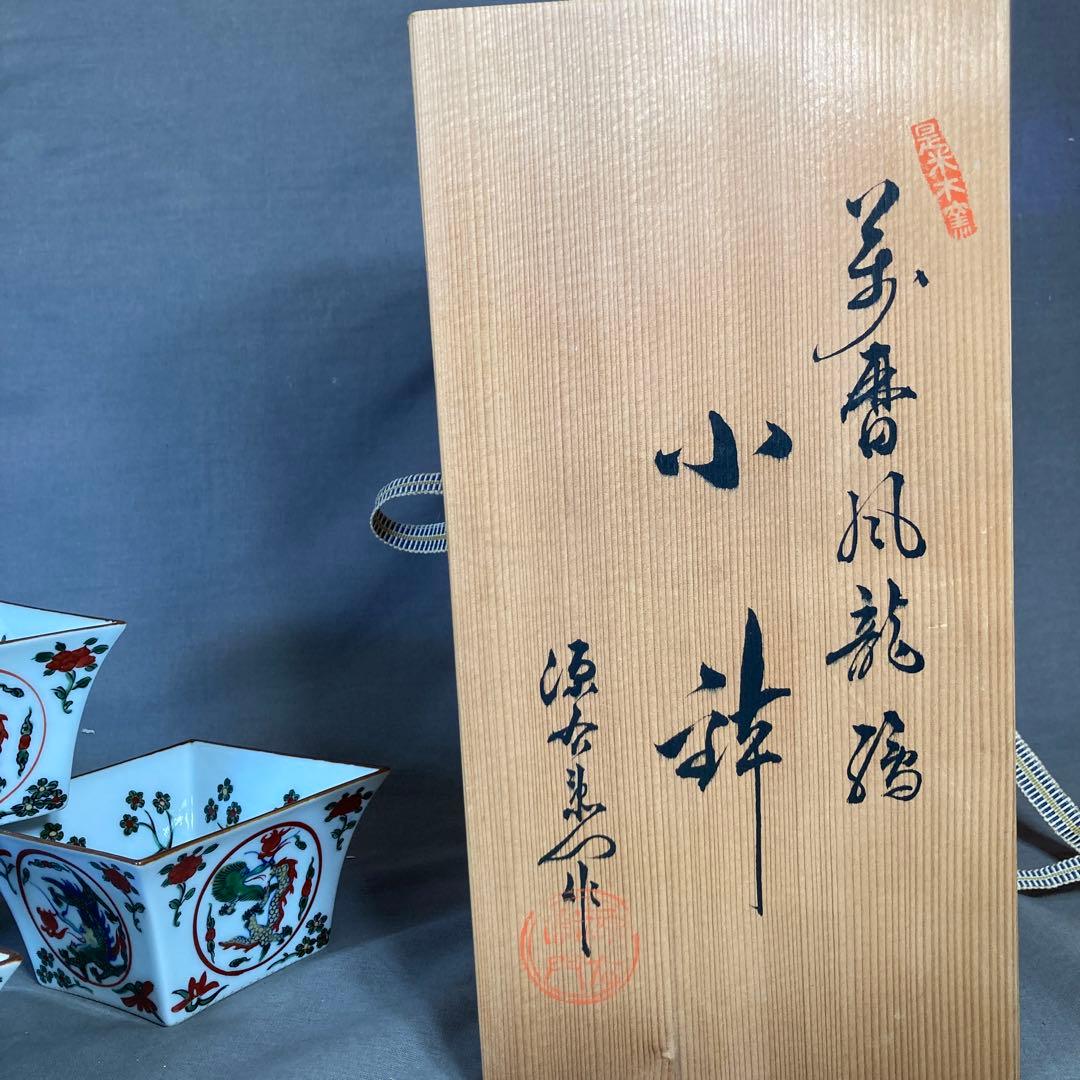 是米木窯
萬暦風龍繪
小鉢
源右衛門作